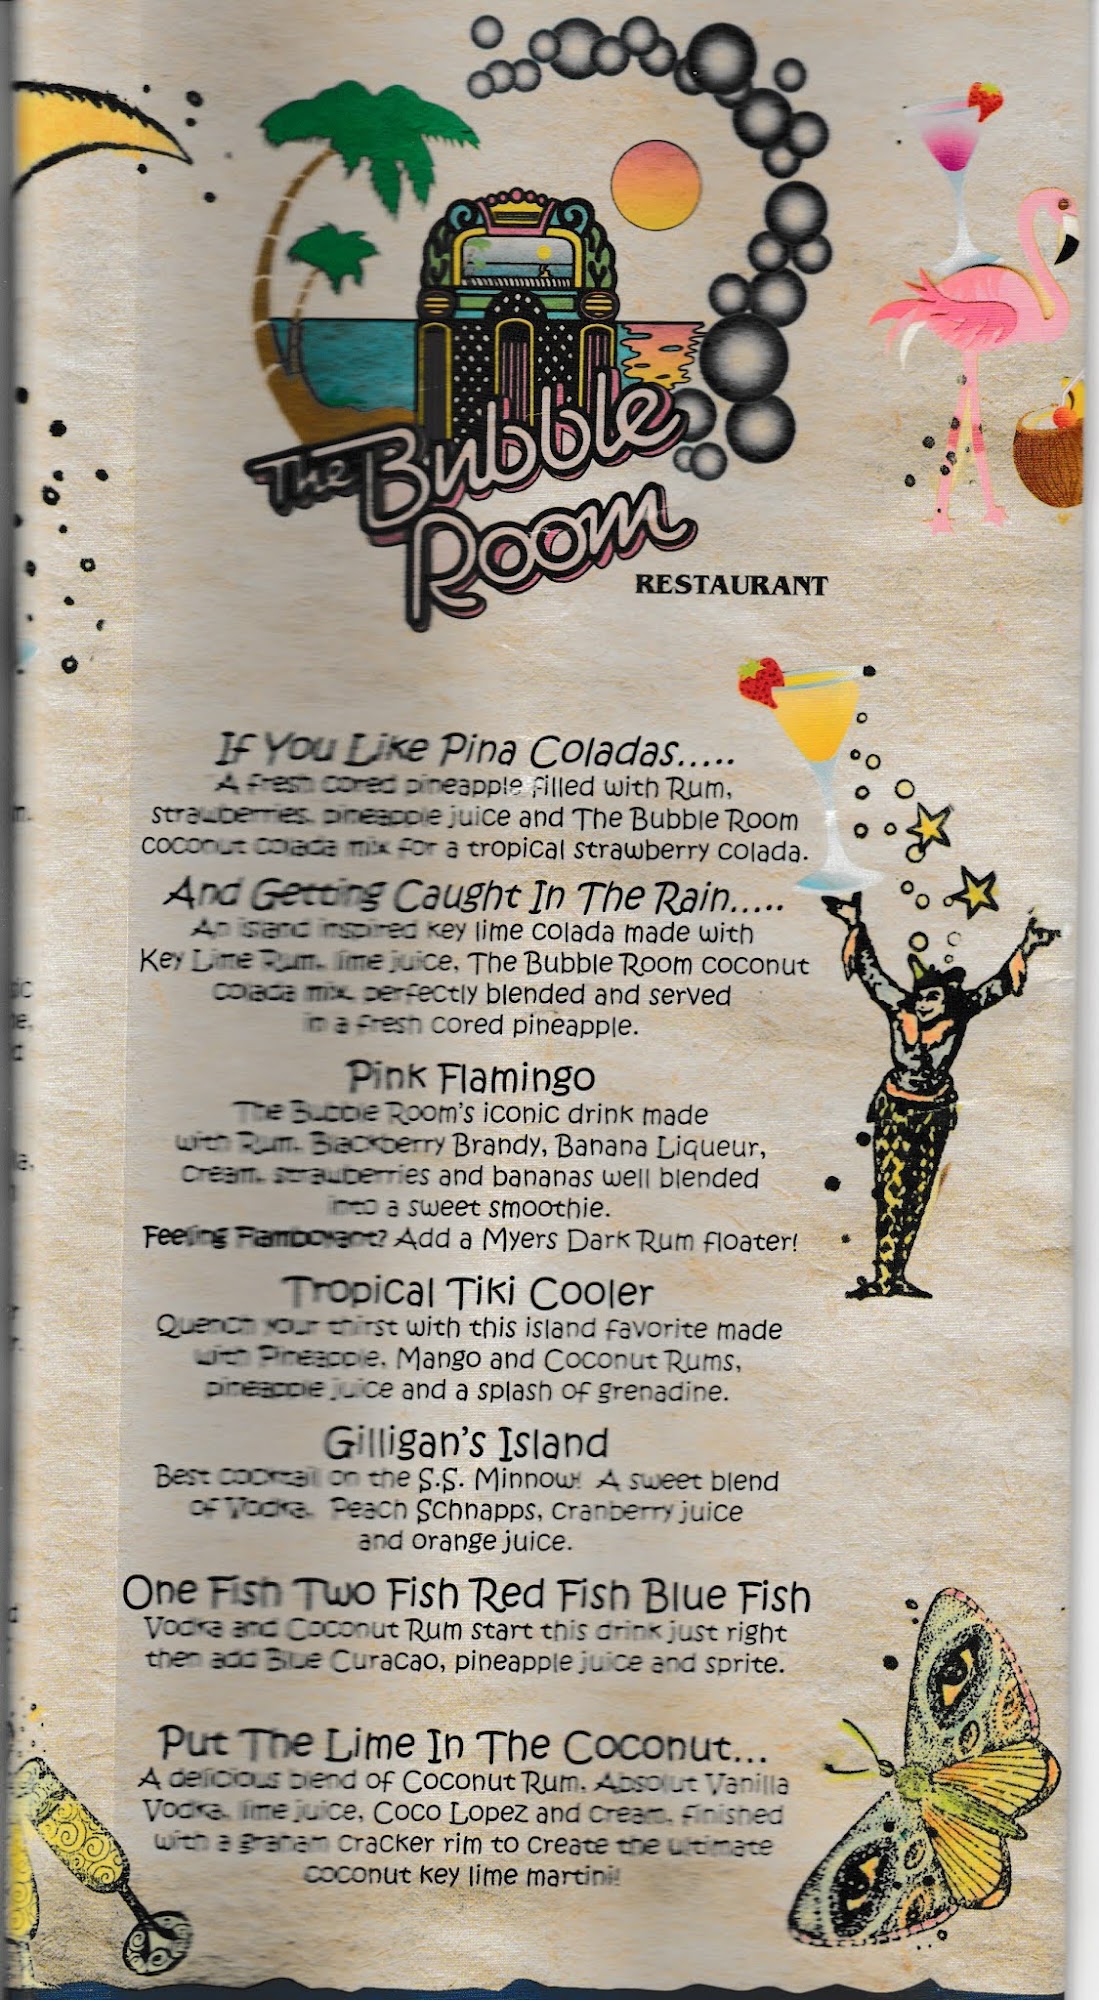 The Bubble
Room
RESTAURANT
If You Like Pina Coladas.....
A fresh cored pineapple filled with Rum,
strawberries, pineapple juice and The Bubble Room
coconut colada mix for a tropical strawberry colada.
And Getting Caught In The Rain.....
An island inspired key lime colada made with
Key Lime Rum, lime juice, The Bubble Room coconut
colada mix, perfectly blended and served
in a fresh cored pineapple.
Pink Flamingo
The Bubble Room's iconic drink made
with Rum, Blackberry Brandy, Banana Liqueur,
cream, strawberries and bananas well blended
into a sweet smoothie.
Feeling Flamboyant? Add a Myers Dark Rum floater!
Tropical Tiki Cooler
Quench your thirst with this island favorite made
with Pineapple, Mango and Coconut Rums,
pineapple juice and a splash of grenadine.
Gilligan's Island
Best cocktail on the S.S. Minnow! A sweet blend
of Vodka, Peach Schnapps, cranberry juice
and orange juice.
One Fish Two Fish Red Fish Blue Fish
Vodka and Coconut Rum start this drink just right
then add Blue Curacao, pineapple juice and sprite.
Put The Lime In The Coconut...
A delicious blend of Coconut Rum, Absolut Vanilla
Vodka, lime juice, Coco Lopez and cream, finished
with a graham cracker rim to create the ultimate
coconut key lime martini!